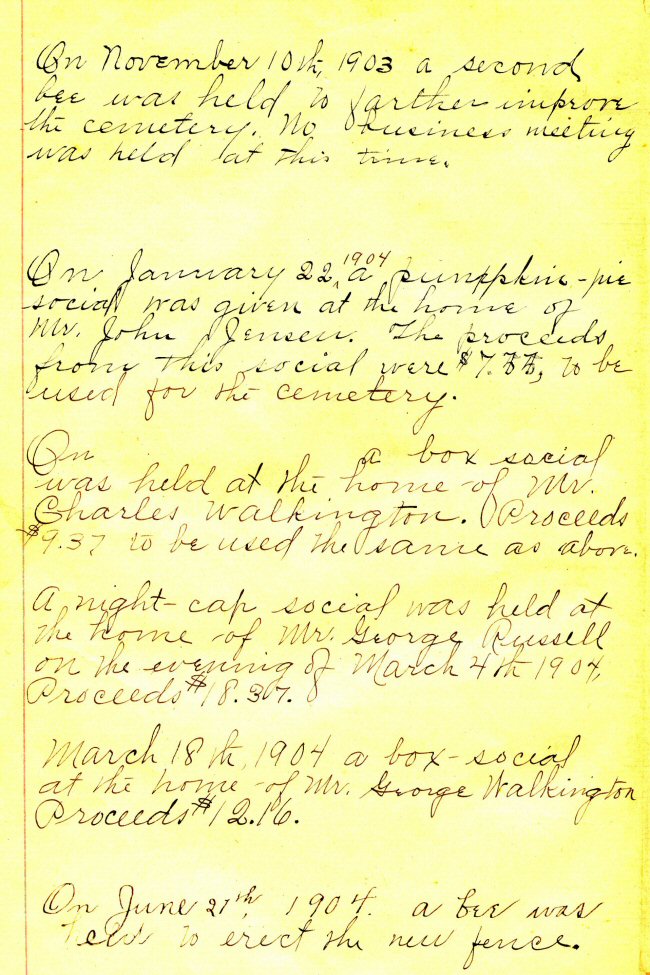 On November 10th, 1903 a second
bee was held to farther improve
the cemetery. No business meeting
was held at this time.
On January 22, 1904 a pumpkin-pie
social was given at the home of
Mr. John Jensen. The proceeds
from this social were $7.77, to be
used for the cemetery.
On a box social
was held at the home of Mr.
Charles Walkington. Proceeds
$9.37 to be used the same as above.
A night-cap social was held at
the home of Mr. George Russell
on the evening of March 4th 1904,
Proceeds $18.37.
March 18th, 1904 a box-social
at the home of Mr. George Walkington
Proceeds $12.16.
On June 21th, 1904. a bee was
held to erect the new fence.